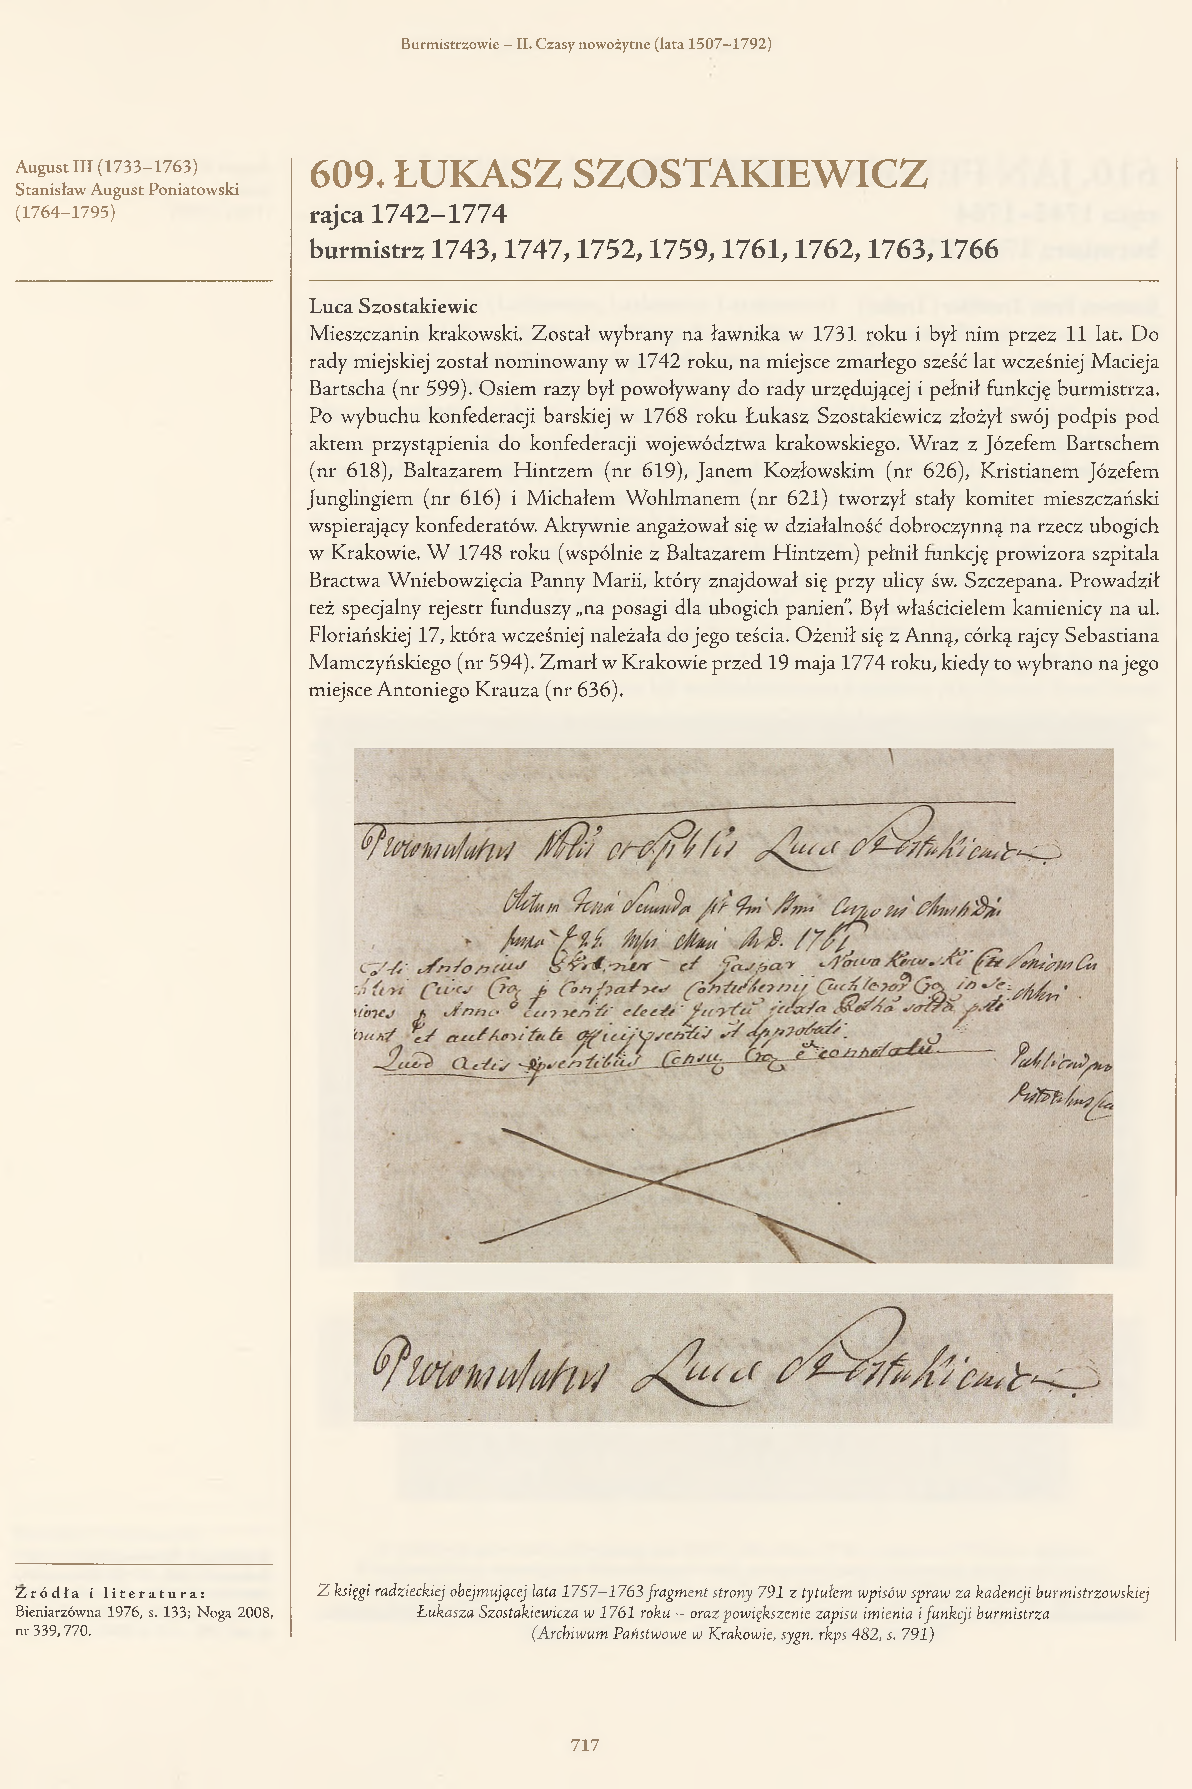 Burmistrzowie – II. Czasy nowożytne (lata 1507–1792)
August III (1733–1763)
Stanisław August Poniatowski
(1764–1795)
609. ŁUKASZ SZOSTAKIEWICZ
rajca 1742–1774
burmistrz 1743, 1747, 1752, 1759, 1761, 1762, 1763, 1766
Luca Szostakiewic
Mieszczanin krakowski. Został wybrany na ławnika w 1731 roku i był nim przez 11 lat. Do
rady miejskiej został nominowany w 1742 roku, na miejsce zmarłego sześć lat wcześniej Macieja
Bartscha (nr 599). Osiem razy był powoływany do rady urzędującej i pełnił funkcję burmistrza.
Po wybuchu konfederacji barskiej w 1768 roku Łukasz Szostakiewicz złożył swój podpis pod
aktem przystąpienia do konfederacji województwa krakowskiego. Wraz z Józefem Bartschem
(nr 618), Baltazarem Hintzem (nr 619), Janem Kozłowskim (nr 626), Kristianem Józefem
Junglingiem (nr 616) i Michałem Wohlmanem (nr 621) tworzył stały komitet mieszczański
wspierający konfederatów. Aktywnie angażował się w działalność dobroczynną na rzecz ubogich
w Krakowie. W 1748 roku (wspólnie z Baltazarem Hintzem) pełnił funkcję prowizora szpitala
Bractwa Wniebowzięcia Panny Marii, który znajdował się przy ulicy św. Szczepana. Prowadził
też specjalny rejestr funduszy „na posagi dla ubogich panien”. Był właścicielem kamienicy na ul.
Floriańskiej 17, która wcześniej należała do jego teścia. Ożenił się z Anną, córką rajcy Sebastiana
Mamczyńskiego (nr 594). Zmarł w Krakowie przed 19 maja 1774 roku, kiedy to wybrano na jego
miejsce Antoniego Krauza (nr 636).
Proconsulatus Luca Szostakiewic
Actum Feria Secunda
A.D. 1761
Antonius et Gaspar Nowakowski
Cives Confratres Contubernij
Anno currenti electi juxta
et authoritate officij approbati
Quod Actis
Proconsulatus Luca Szostakiewic
Źródła i literatura:
Bieniarzówna 1976, s. 133; Noga 2008,
nr 339, 770.
Z księgi radzieckiej obejmującej lata 1757–1763 fragment strony 791 z tytułem wpisów spraw za kadencji burmistrzowskiej
Łukasza Szostakiewicza w 1761 roku – oraz powiększenie zapisu imienia i funkcji burmistrza
(Archiwum Państwowe w Krakowie, sygn. rkps 482, s. 791)
717